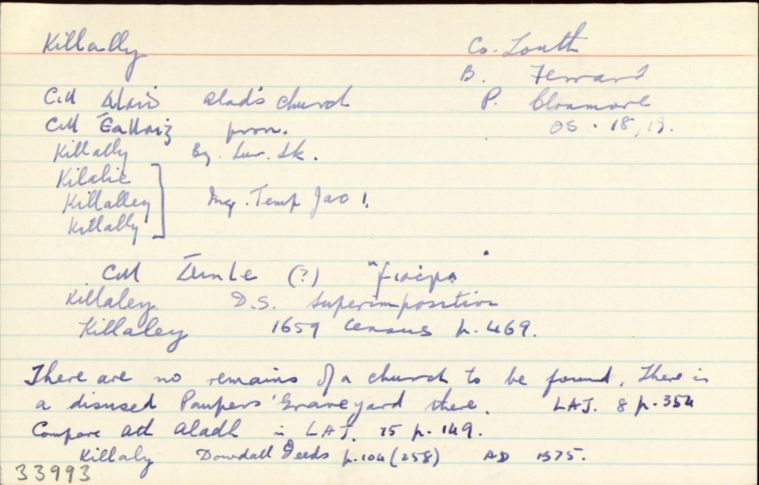 Killally Co. Louth
B. Ferrard
P. Clonmore
OS. 18, 19.
Cill alad's church
Cill pron.
Killally By. Sur. Sk.
Kilalie
Killalley Inq. Temp Jac 1.
Killally
Cill (?)
Killaley D.S. superimposition
Killaley 1659 Census p. 469.
There are no remains of a church to be found. There is
a disused Paupers' Graveyard there. LAJ. 8 p. 354
Compare Ath Aladh in LAJ. 15 p. 149.
Killaly Dowdall Deeds p. 104 (258) AD 1575.
33993